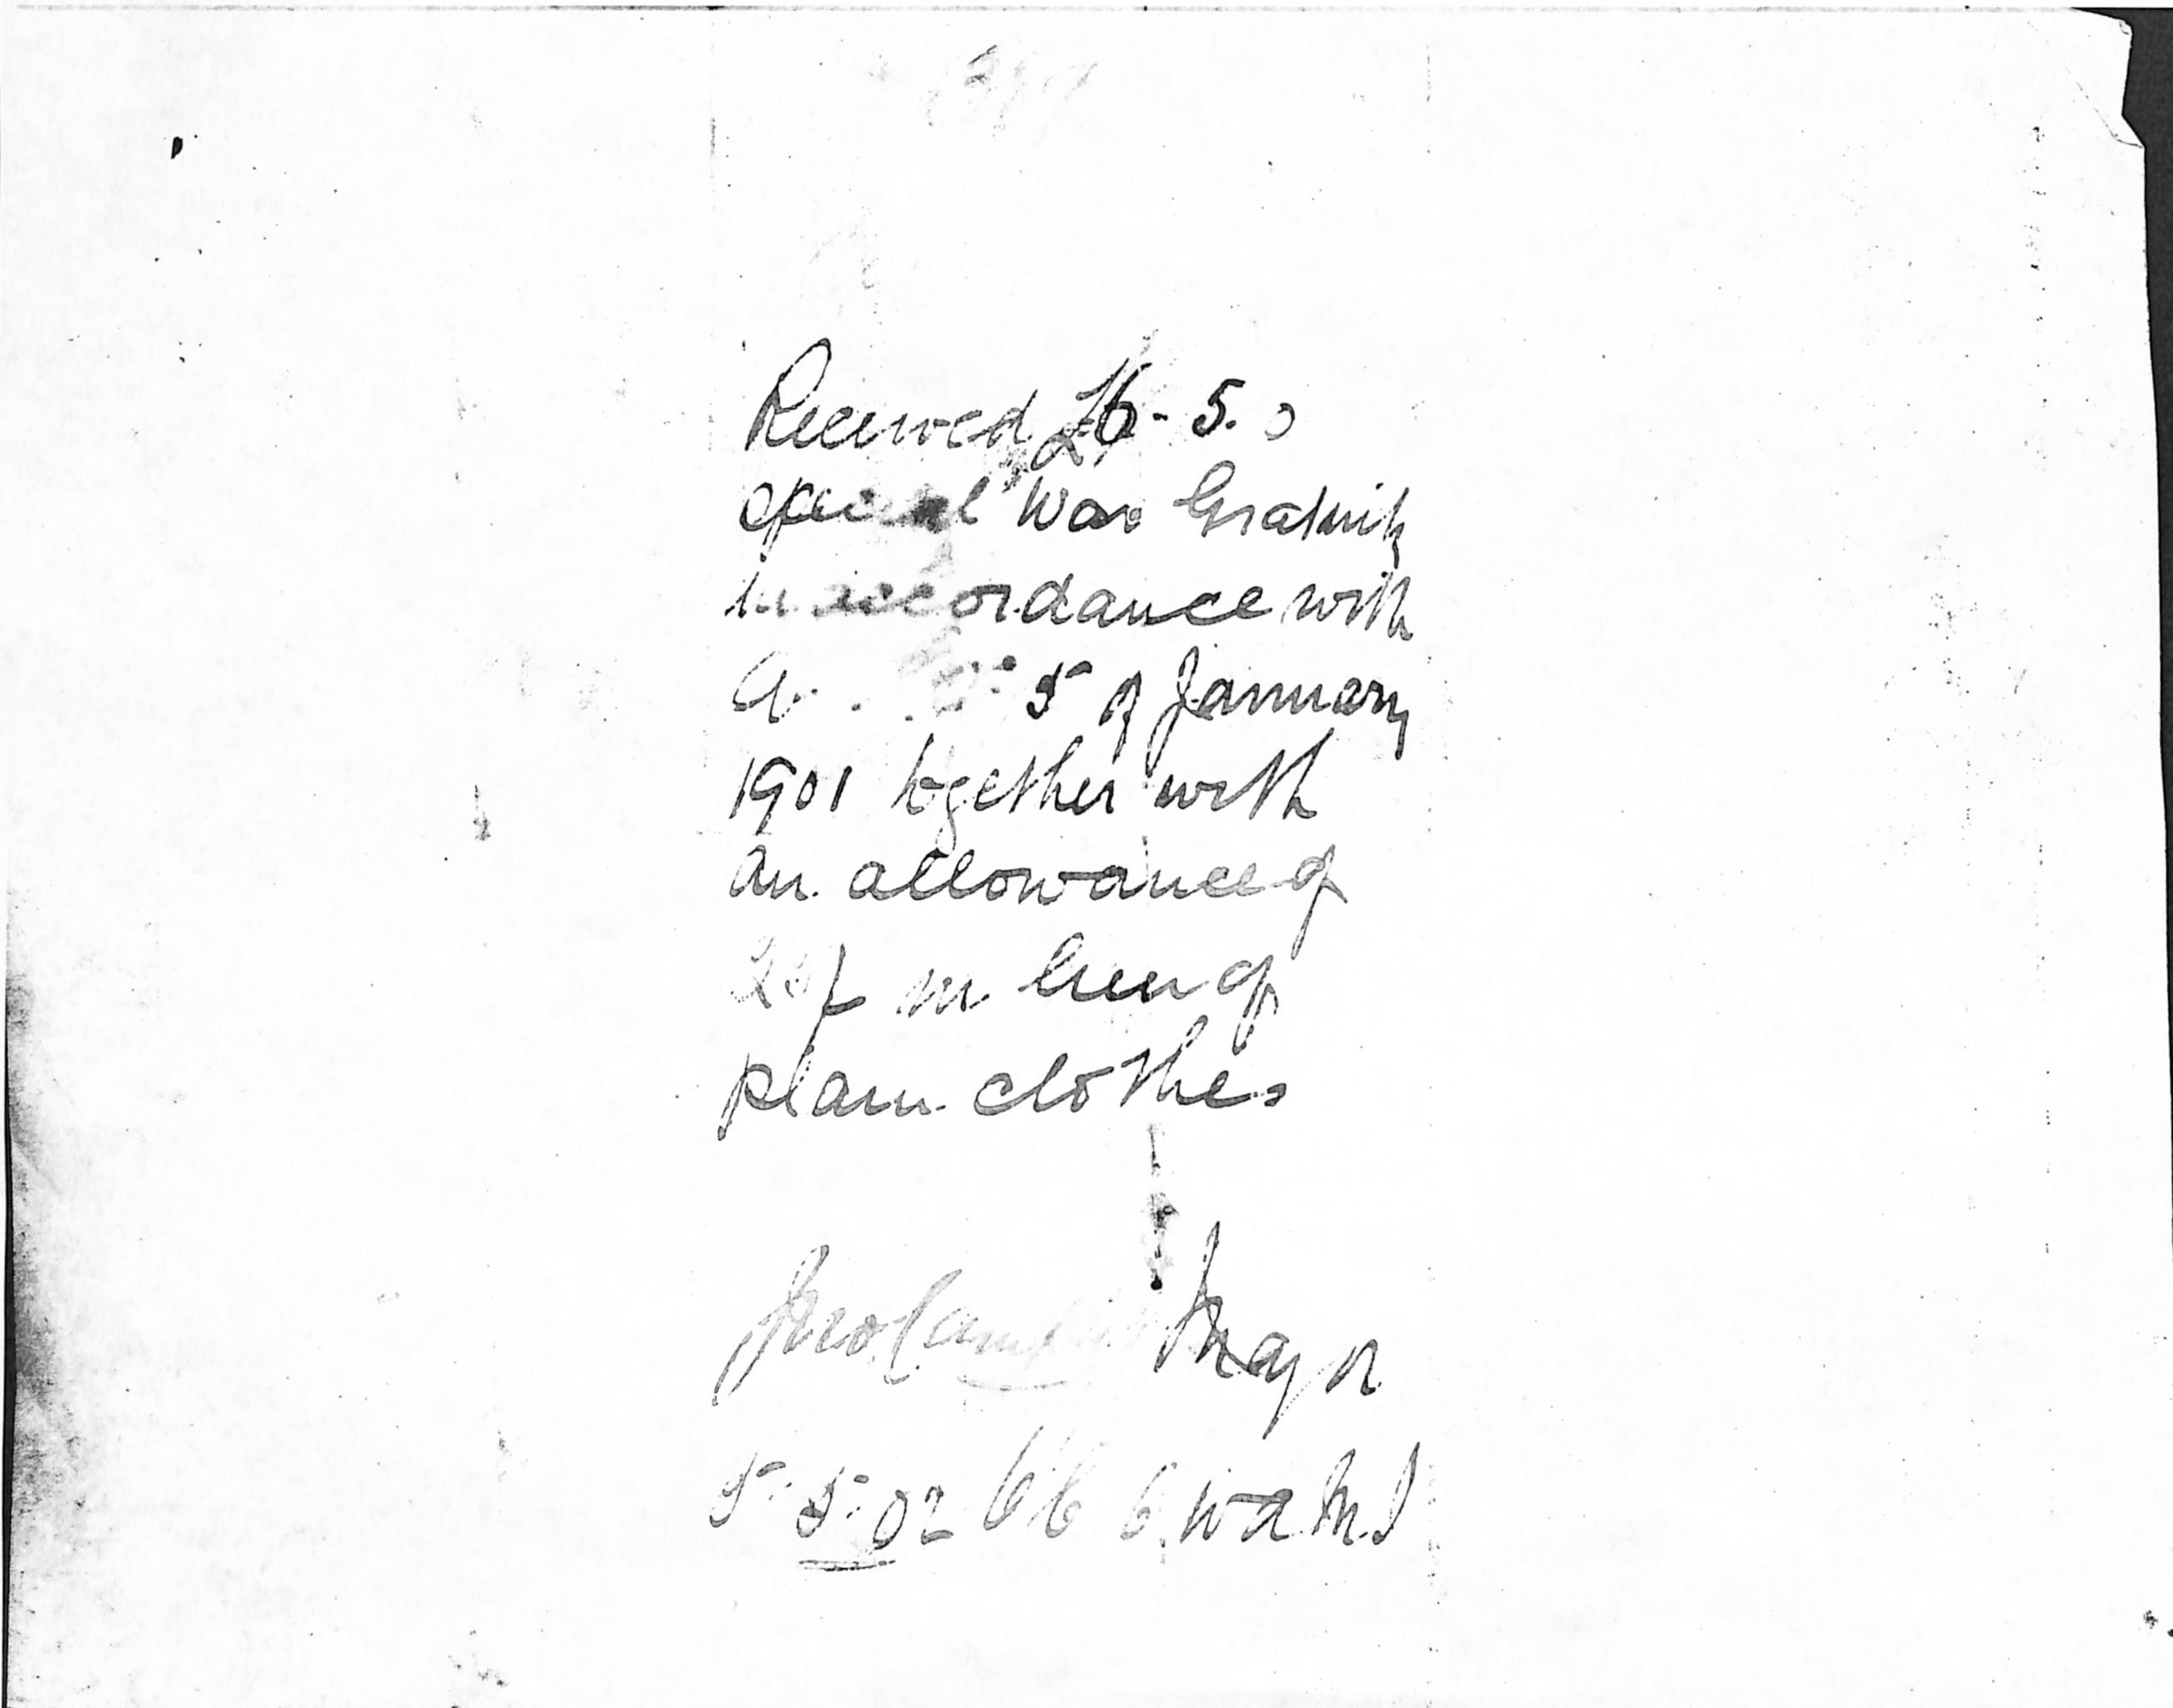 Received £6-5.0
special War Gratuity
in accordance with
A. 5 of January
1901 together with
an allowance of
in lieu of
plain clothes
Major
5.5.02